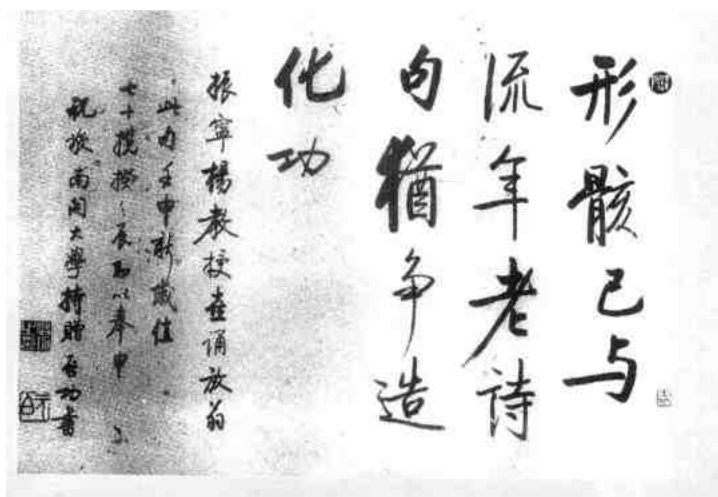 形骸已与
流年老詩
句猶争造
化功
振寧楊教授喜誦放翁
此句壬申新歲值
七十攬揆之辰即以奉申
祝嘏南開大學持贈启功書